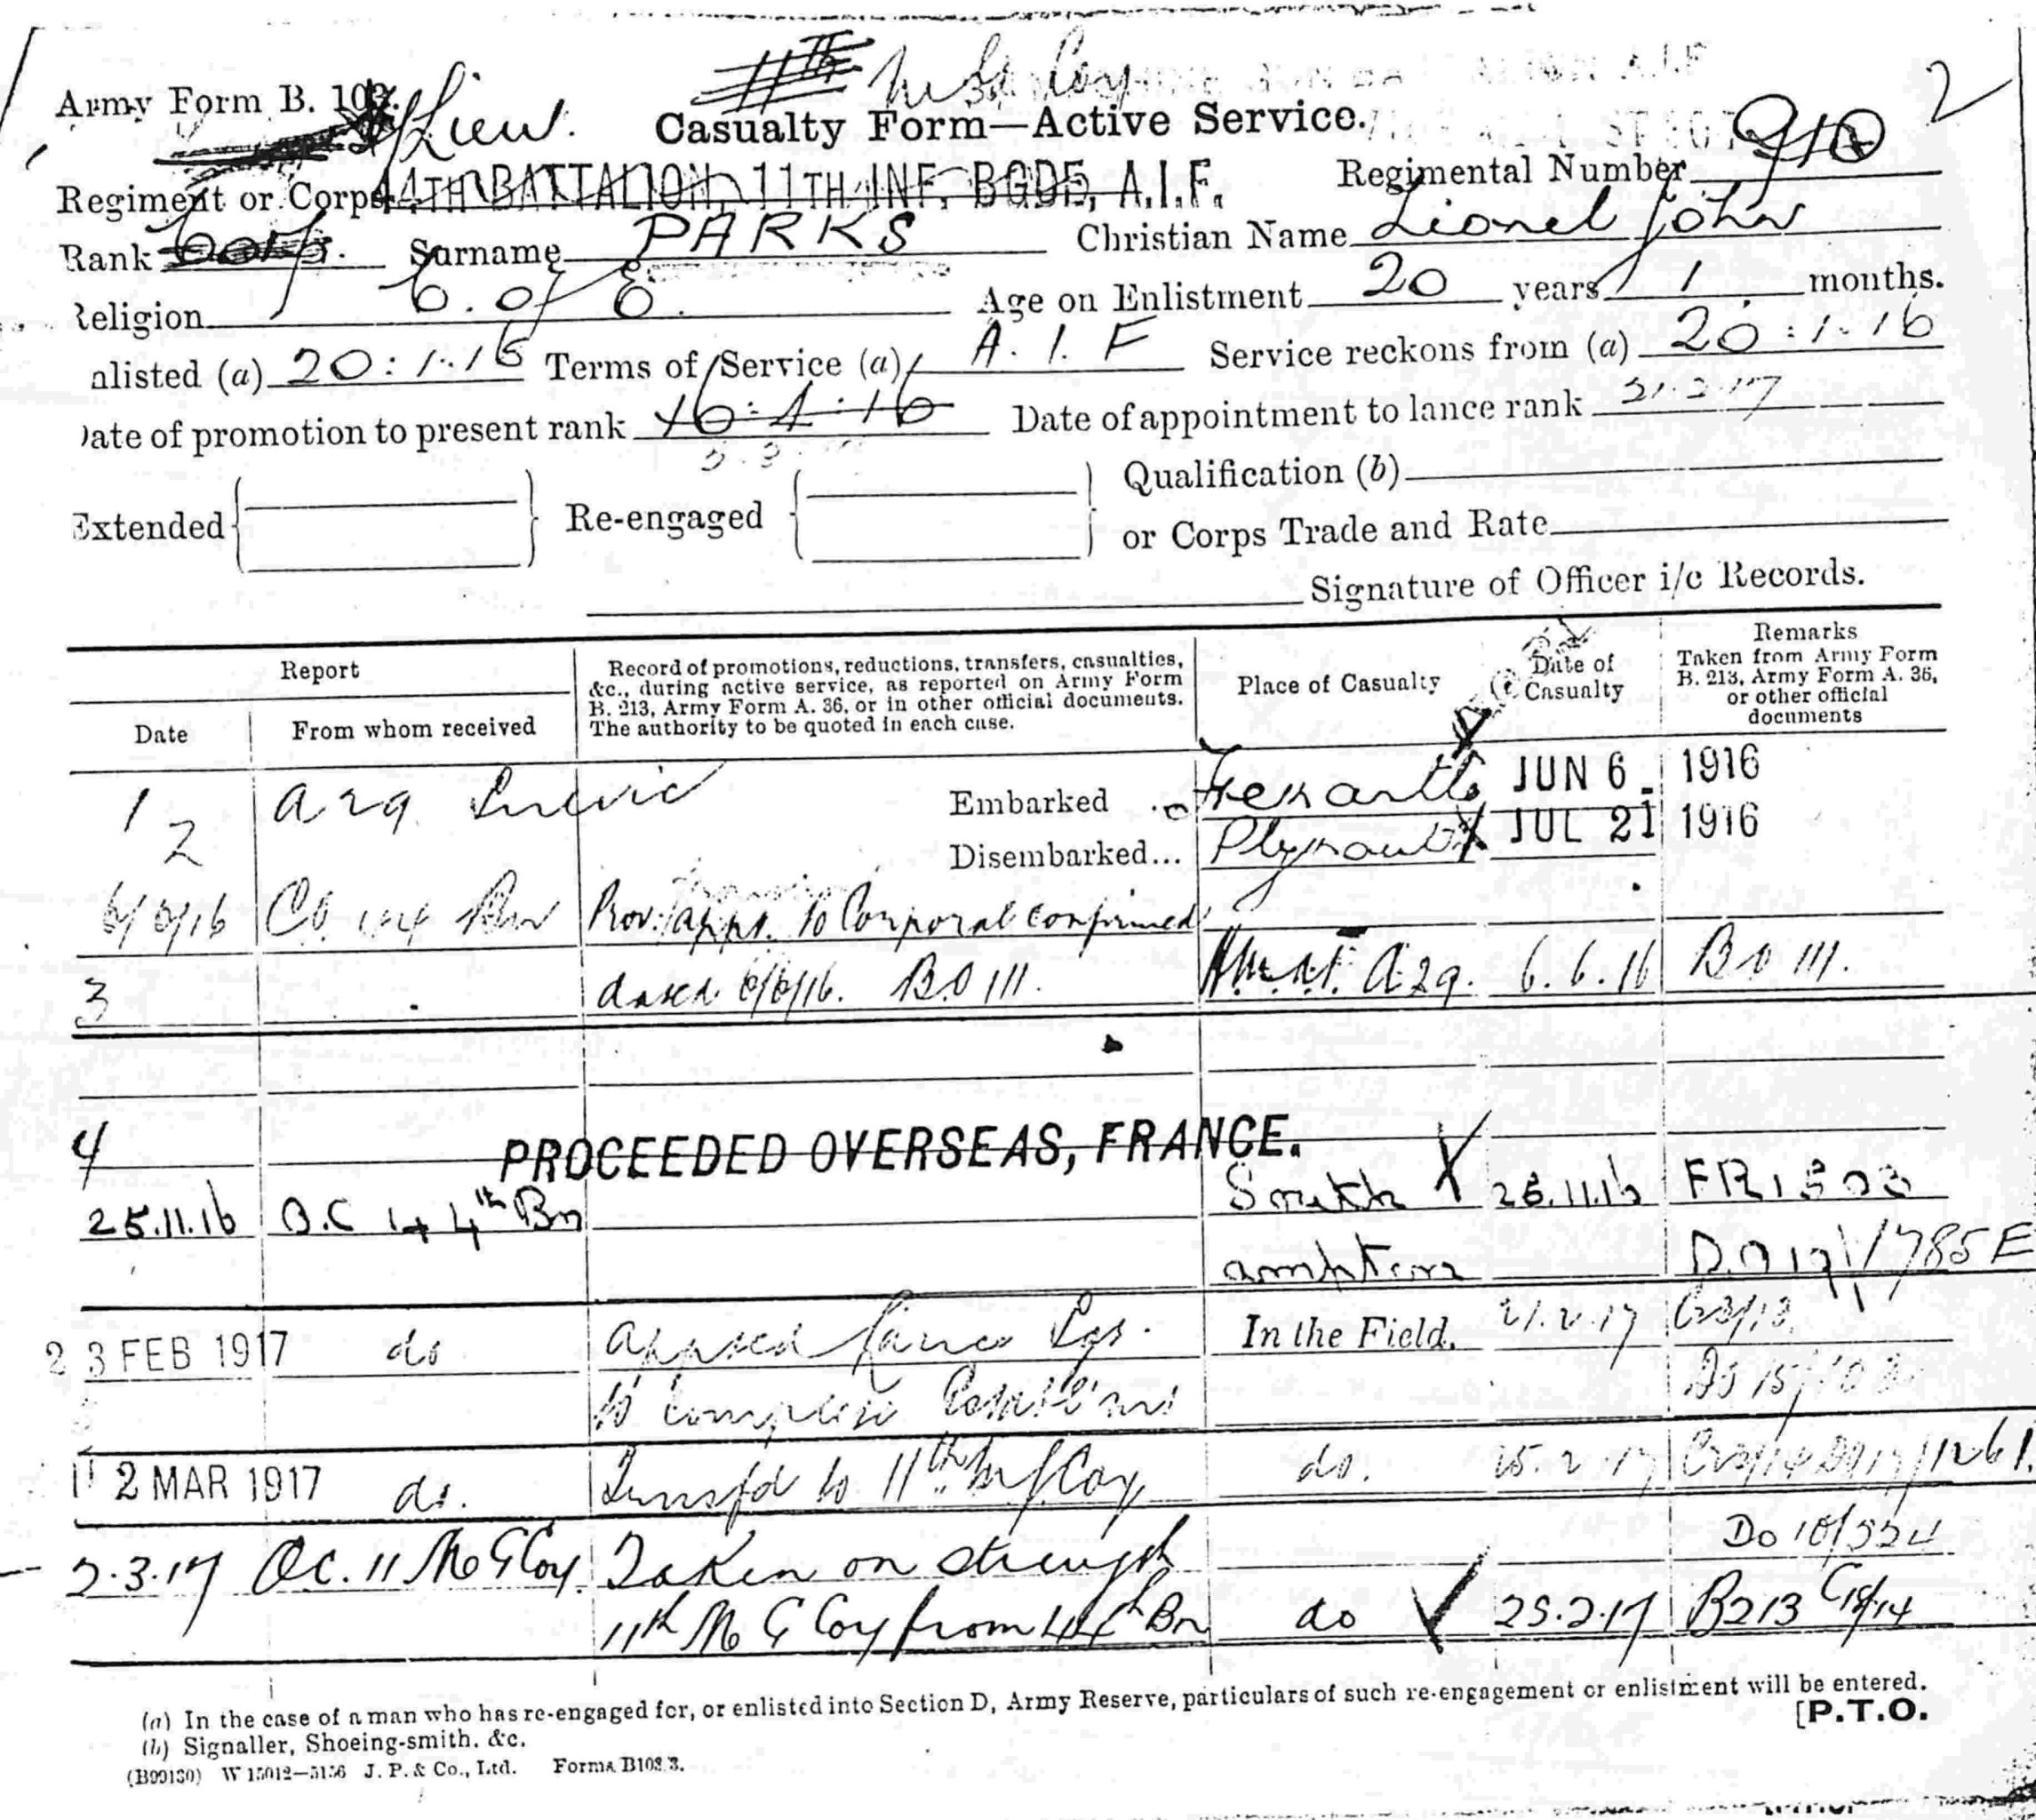 11th M.G. Coy
2
Army Form B. 103.
Lieu.
Casualty Form—Active Service.
Regiment or Corps 44TH BATTALION, 11TH INF. BGDE, A.I.F. Regimental Number 910
Rank Corp. Surname PARKS Christian Name Lionel John
Religion C. of E. Age on Enlistment 20 years 1 months.
nlisted (a) 20:1.16 Terms of Service (a) A.I.F Service reckons from (a) 20:1.16
Date of promotion to present rank 16:4:16 Date of appointment to lance rank 21.2.17
Extended Re-engaged Qualification (b)
or Corps Trade and Rate
Signature of Officer i/c Records.
Report
Date From whom received
Record of promotions, reductions, transfers, casualties,
&c., during active service, as reported on Army Form
B. 213, Army Form A. 36, or in other official documents.
The authority to be quoted in each case.
Place of Casualty
Date of
Casualty
Remarks
Taken from Army Form
B. 213, Army Form A. 36,
or other official
documents
1 A29 Embarked Fremantle JUN 6 1916
2 Disembarked... Plymouth JUL 21 1916
6/6/16 CO 44 Bn Prov. appt. to Corporal confirmed
3 dated 6/6/16. BO 111. H.M.A.T. A29. 6.6.16 BO 111.
4 PROCEEDED OVERSEAS, FRANCE.
25.11.16 O.C 44th Bn South 25.11.16 FR1503
ampton D.O 19/1785E
23 FEB 1917 do apptd Lance Sgt. In the Field. 21.2.17 Cr3/13
to complete
2 MAR 1917 do. Transfd to 11th M.G. Coy do. 25.2.17
Do 10/554
2.3.17 OC. 11 M G Coy. Taken on strength
11th M G Coy from 44th Bn do 25.2.17 B213
(a) In the case of a man who has re-engaged for, or enlisted into Section D, Army Reserve, particulars of such re-engagement or enlistment will be entered.
(b) Signaller, Shoeing-smith, &c.
[P.T.O.
(B99130) W 15012—5156 J. P. & Co., Ltd. Forms B103/3.